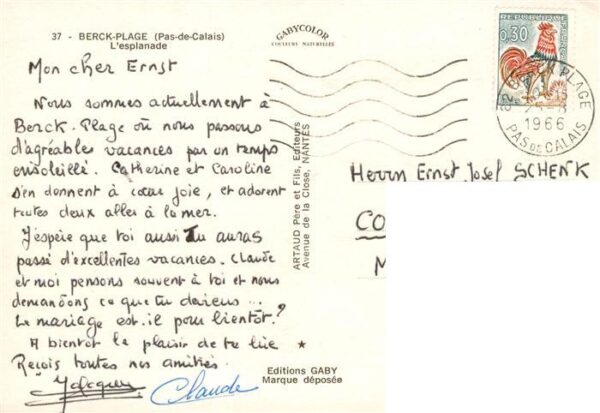 37 - BERCK-PLAGE (Pas-de-Calais)
L'esplanade
GABYCOLOR
COULEURS NATURELLES
Mon cher Ernst
Nous sommes actuellement à
Berck-Plage où nous passons
d'agréables vacances par un temps
ensoleillé. Catherine et Caroline
s'en donnent à cœur joie, et adorent
toutes deux aller à la mer.
J'espère que toi aussi tu auras
passé d'excellentes vacances. Claude
et moi pensons souvent à toi et nous
demandons ce que tu deviens ...
Le mariage est-il pour bientôt?
A bientôt le plaisir de te lire
Reçois toutes nos amitiés.
Claude
ARTAUD Père et Fils, Editeurs
Avenue de la Close, NANTES
Editions GABY
Marque déposée
REPUBLIQUE FRANÇAISE
0,30
PLAGE
1966
PAS DE CALAIS
Herrn Ernst Josef SCHENK
CO
M